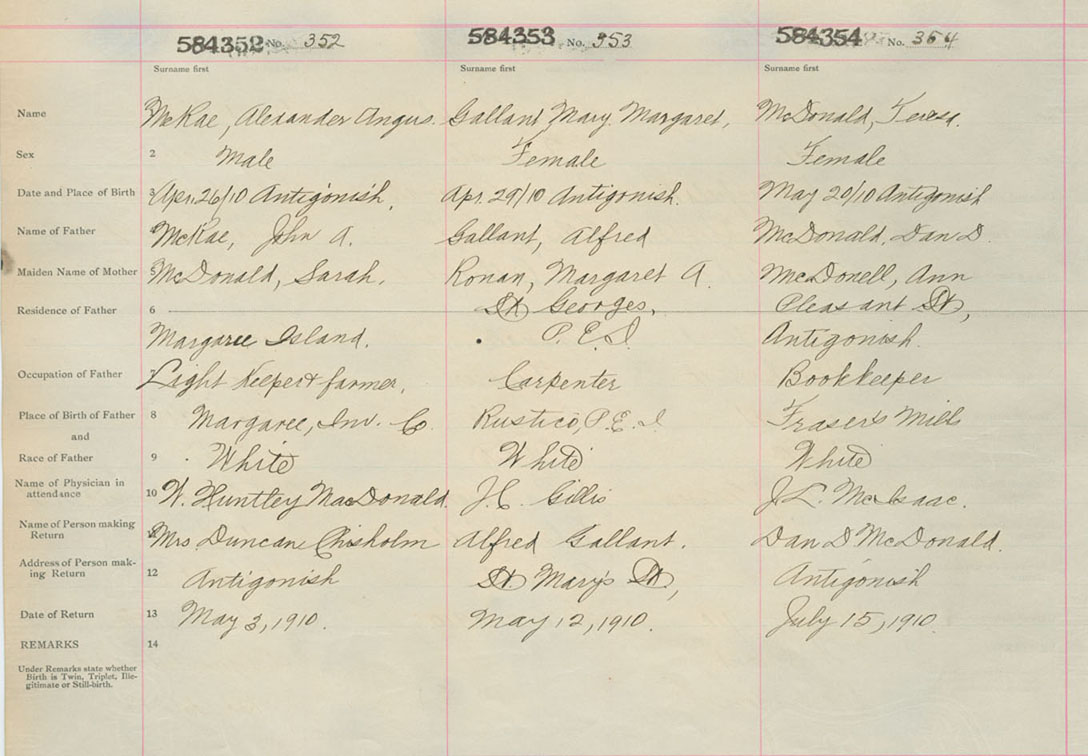 584352 No. 352 584353 No. 353 584354 No. 354
Surname first Surname first Surname first
Name McRae, Alexander Angus. Gallant, Mary Margaret, McDonald, Teresa.
Sex 2 Male Female Female
Date and Place of Birth 3 Apr. 26/10 Antigonish, Apr. 29/10 Antigonish. May 20/10 Antigonish
Name of Father McRae, John A. Gallant, Alfred McDonald, Dan D.
Maiden Name of Mother 5 McDonald, Sarah. Ronan, Margaret A. McDonell, Ann
Residence of Father 6 St Georges, Pleasant St,
Margaree Island. P.E.I Antigonish.
Occupation of Father 7 Light Keeper & farmer, Carpenter Bookkeeper
Place of Birth of Father 8 Margaree, Inv. Co. Rustico, P.E.I Fraser's Mills
and
Race of Father 9 White White White
Name of Physician in
attendance 10 W. Huntley MacDonald. J.C. Gillis J.L. McIsaac.
Name of Person making
Return Mrs Duncan Chisholm Alfred Gallant. Dan D McDonald.
Address of Person mak-
ing Return 12 Antigonish St Mary's St, Antigonish
Date of Return 13 May 3, 1910. May 12, 1910. July 15, 1910.
REMARKS 14
Under Remarks state whether
Birth is Twin, Triplet, Ille-
gitimate or Still-birth.